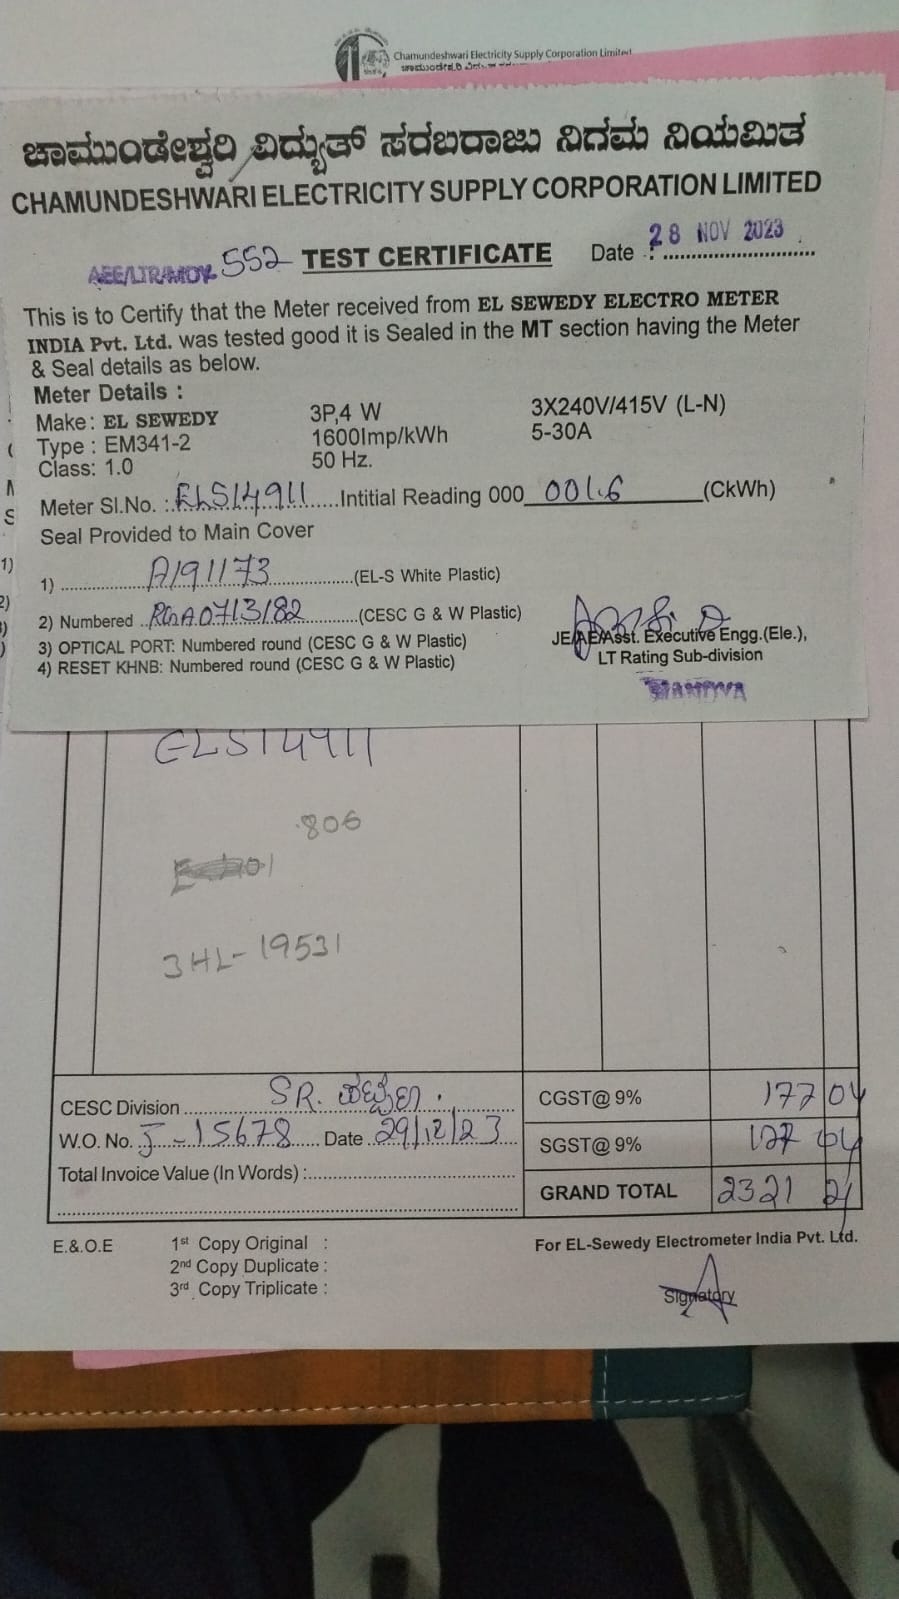 Chamundeshwari Electricity Supply Corporation Limited
ಚಾಮುಂಡೇಶ್ವರಿ ವಿದ್ಯುತ್ ಸರಬರಾಜು ನಿಗಮ ನಿಯಮಿತ
CHAMUNDESHWARI ELECTRICITY SUPPLY CORPORATION LIMITED
AEE/LTR/MDY 552 TEST CERTIFICATE Date : 28 NOV 2023
This is to Certify that the Meter received from EL SEWEDY ELECTRO METER
INDIA Pvt. Ltd. was tested good it is Sealed in the MT section having the Meter
& Seal details as below.
Meter Details :
Make: EL SEWEDY 3P,4 W 3X240V/415V (L-N)
Type : EM341-2 1600Imp/kWh 5-30A
Class: 1.0 50 Hz.
Meter Sl.No. : ELS14911 Intitial Reading 000 001.6 (CkWh)
Seal Provided to Main Cover
1) A191173 (EL-S White Plastic)
2) Numbered (CESC G & W Plastic)
3) OPTICAL PORT: Numbered round (CESC G & W Plastic)
4) RESET KHNB: Numbered round (CESC G & W Plastic)
JE/AE/Asst. Executive Engg.(Ele.),
LT Rating Sub-division
ELS14911
.806
3HL-19531
CESC Division SR. CGST@ 9% 177 04
W.O. No. J-15678 Date 29/12/23 SGST@ 9% 177 04
Total Invoice Value (In Words) :
GRAND TOTAL 2321 21
E.&.O.E 1st Copy Original :
2nd Copy Duplicate :
3rd Copy Triplicate :
For EL-Sewedy Electrometer India Pvt. Ltd.
Signatory